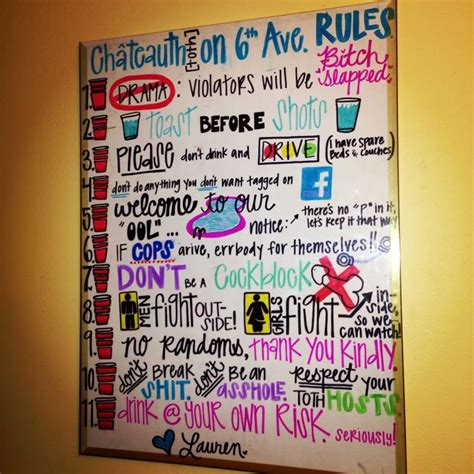 Châteauth [toth] on 6th Ave. RULES
1. DRAMA: violators will be Bitch "slapped"
2. TOAST BEFORE Shots
3. Please don't drink and DRIVE (I have spare Beds & Couches)
4. don't do anything you don't want tagged on f
5. welcome to our "OOL"... notice: there's no "P" in it, let's keep it that way
6. IF COPS arive, errbody for themselves!!
7. DON'T BE a Cockblock
8. MEN fight OUT-SIDE! GIRLS fight in-side, so we can watch!
9. no randoms, thank you kindly.
10. don't Break SHIT. don't Be an asshole. respect your TOTH HOSTS
11. drink @ your own risk. seriously!
Lauren.